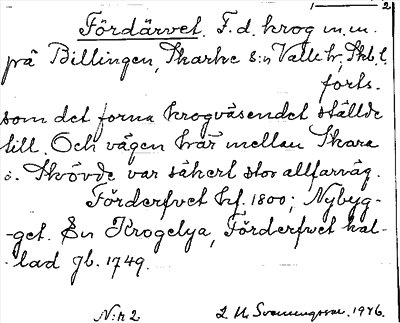 1 — 2
Fördärvet. F.d. krog m.m.
på Billingen, Skarke s:n Valle hr, Skb.l.
forts.
som det forna krogväsendet ställde
till. Och vägen här mellan Skara
o. Skövde var säkert stor allfarväg.
Förderfvet hf. 1800; Nybyg-
-get. En Krogelya, Förderfvet kal-
-lad Jb. 1749.
N:r 2 1946.